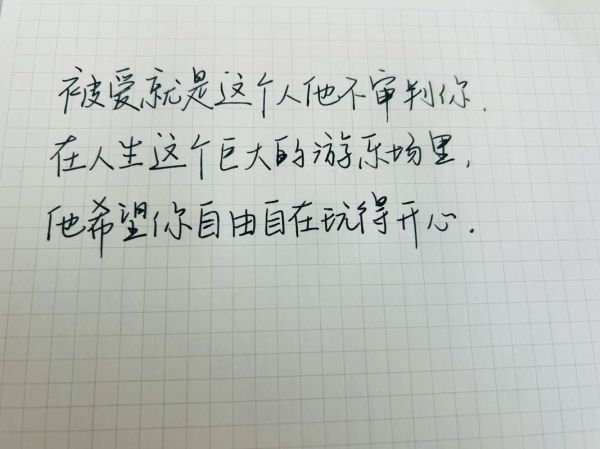 被爱就是这个人他不审判你.
在人生这个巨大的游乐场里,
他希望你自由自在玩得开心.